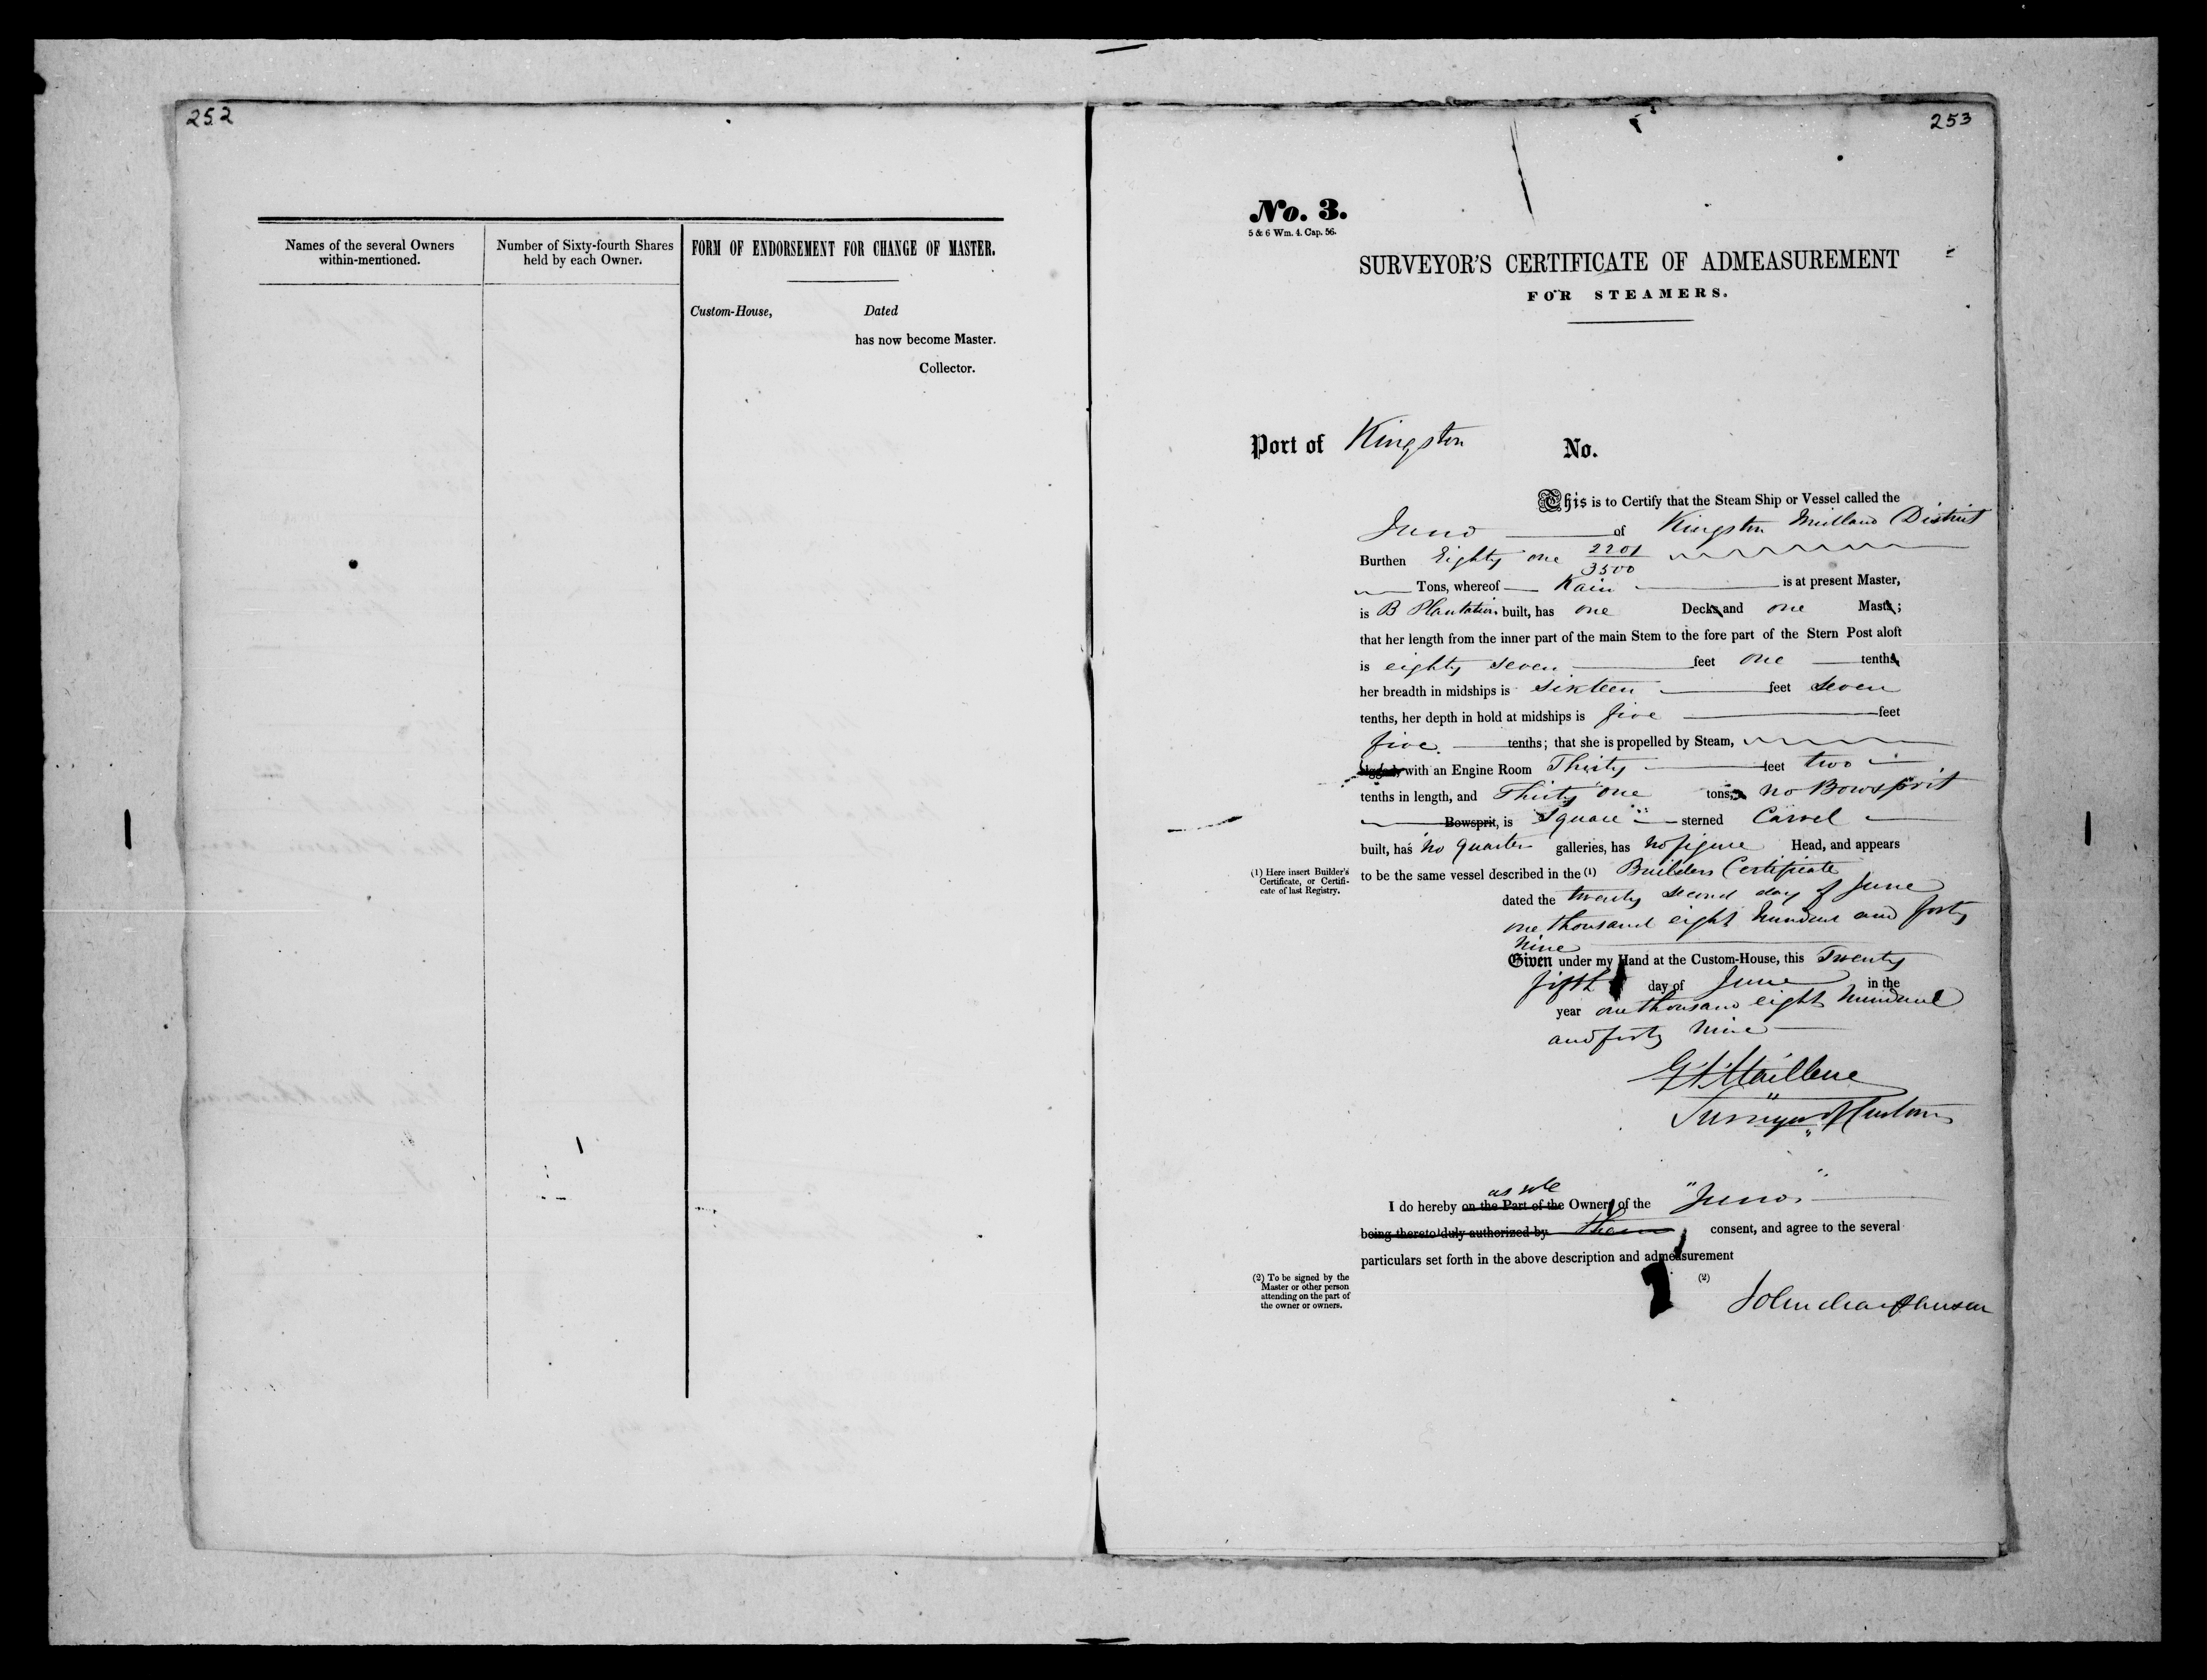 252
Names of the several Owners
within-mentioned.
Number of Sixty-fourth Shares
held by each Owner.
FORM OF ENDORSEMENT FOR CHANGE OF MASTER.
Custom-House, Dated
has now become Master.
Collector.
253
No. 3.
5 & 6 Wm. 4. Cap. 56.
SURVEYOR'S CERTIFICATE OF ADMEASUREMENT
FOR STEAMERS.
Port of Kingston No.
This is to Certify that the Steam Ship or Vessel called the
Juno of Kingston Midland District
Burthen Eighty one 2201/3500
Tons, whereof Kain is at present Master,
is B Plantation built, has one Decks and one Masts;
that her length from the inner part of the main Stem to the fore part of the Stern Post aloft
is eighty seven feet one tenths,
her breadth in midships is sixteen feet seven
tenths, her depth in hold at midships is five feet
five tenths; that she is propelled by Steam,
rigged, with an Engine Room Thirty feet two
tenths in length, and Thirty one tons; no Bowsprit
Bowsprit, is Square sterned Carvel
built, has no Quarter galleries, has no figure Head, and appears
(1) Here insert Builder's
Certificate, or Certifi-
cate of last Registry.
to be the same vessel described in the (1) Builders Certificate
dated the twenty second day of June
one thousand eight hundred and forty
nine
Given under my Hand at the Custom-House, this Twenty
fifth day of June in the
year one thousand eight hundred
and forty nine
Surveyor of Customs
as sole
I do hereby on the Part of the Owners of the "Juno"
being thereto duly authorized by them consent, and agree to the several
particulars set forth in the above description and admeasurement
(2) To be signed by the
Master or other person
attending on the part of
the owner or owners.
(2)
John